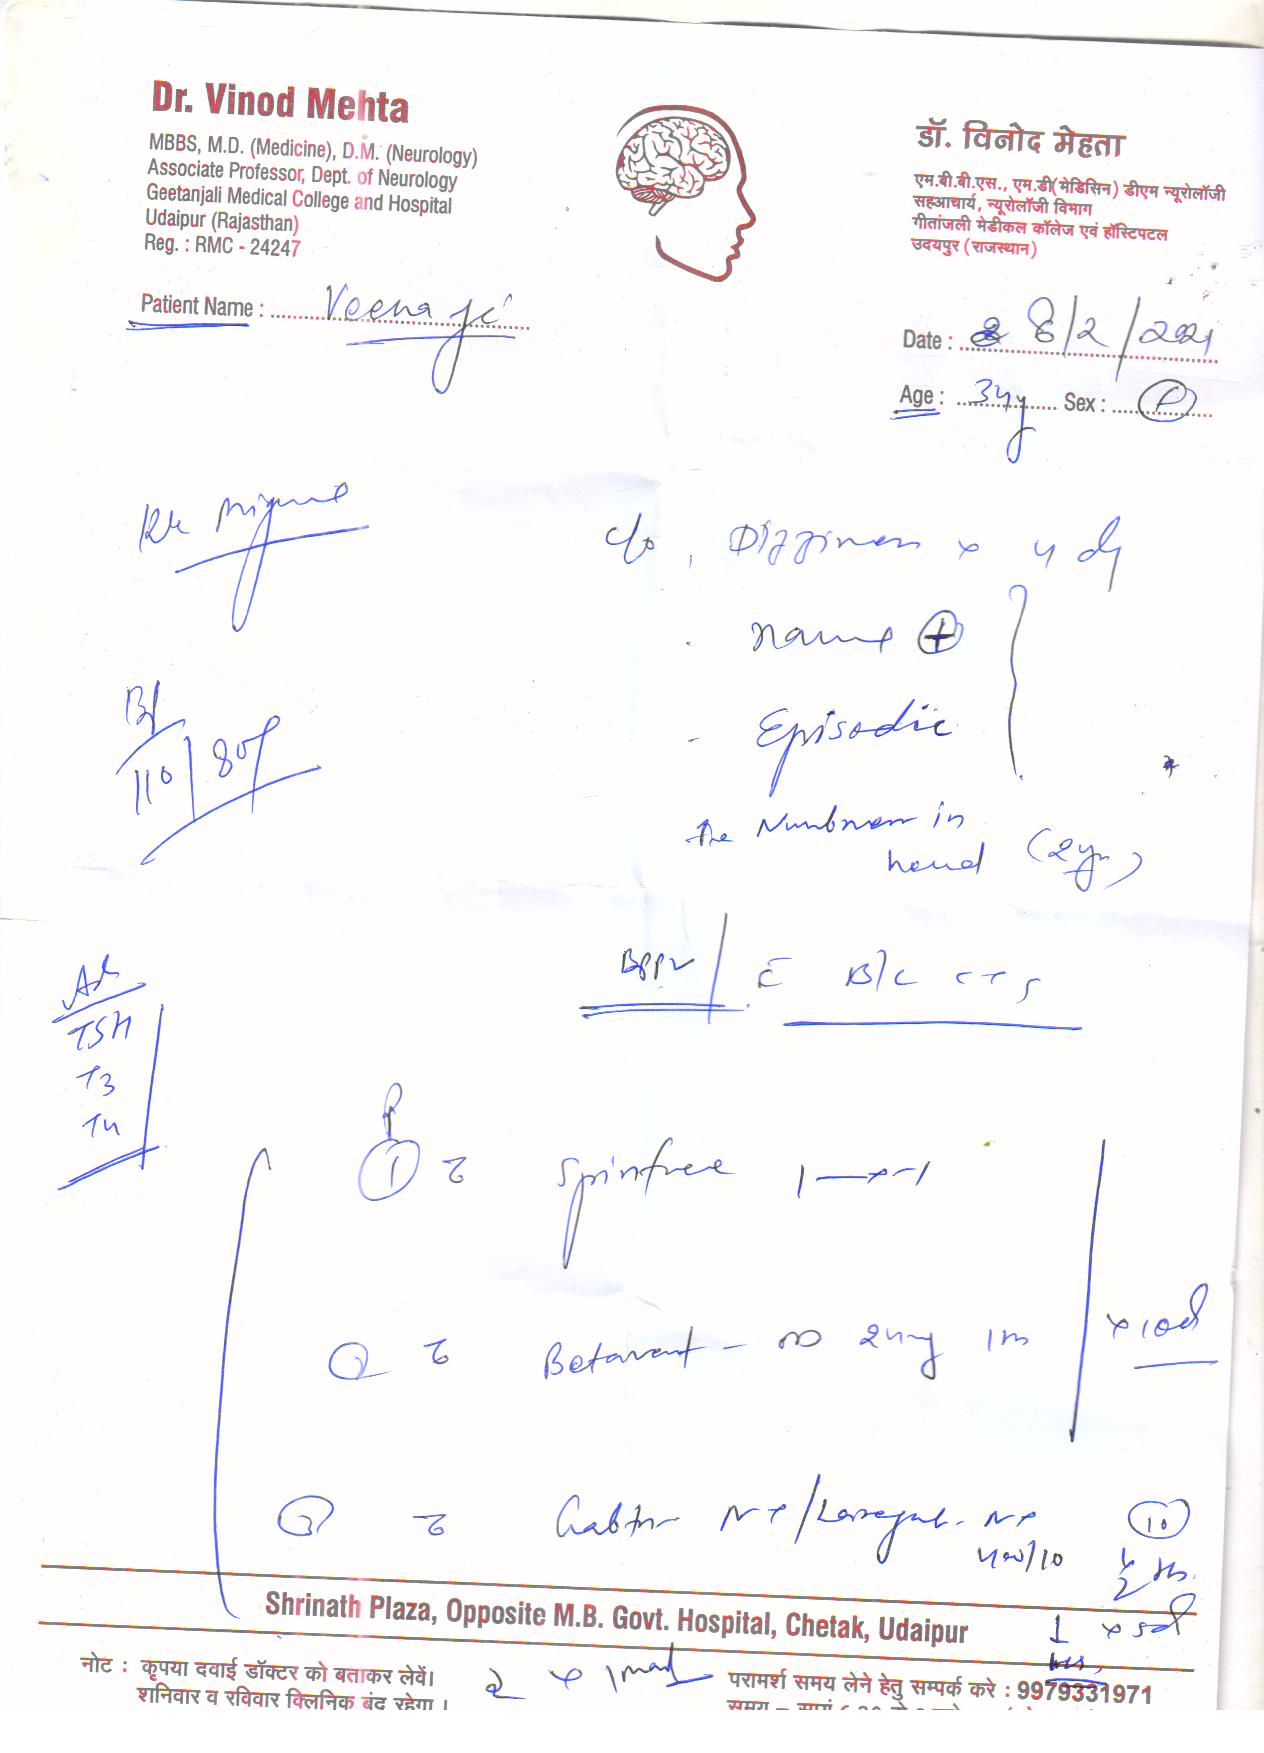 Dr. Vinod Mehta
MBBS, M.D. (Medicine), D.M. (Neurology)
Associate Professor, Dept. of Neurology
Geetanjali Medical College and Hospital
Udaipur (Rajasthan)
Reg. : RMC - 24247
डॉ. विनोद मेहता
एम.बी.बी.एस., एम.डी(मेडिसिन) डीएम न्यूरोलॉजी
सहआचार्य, न्यूरोलॉजी विभाग
गीतांजली मेडीकल कॉलेज एवं हॉस्टिपटल
उदयपुर (राजस्थान)
Patient Name : Veena ji
Date : 8/2/2021
Age : 34y Sex :
c/o, Dizziness x 4 dy
Nausea +
- Episodic
BP
110/80
Numbness in
hand (2yr)
BPPV / c̄ B/L CTS
Adv
TSH
T3
T4
1 Spinfree 1—x—1
2 Betavert - OD 24mg 1
x 10d
3 NT / NT 10
400/10 1/2 hs
1 x 5d
hs
Shrinath Plaza, Opposite M.B. Govt. Hospital, Chetak, Udaipur
2 x 1
नोट : कृपया दवाई डॉक्टर को बताकर लेवें।
शनिवार व रविवार क्लिनिक बंद रहेगा ।
परामर्श समय लेने हेतु सम्पर्क करे : 9979331971